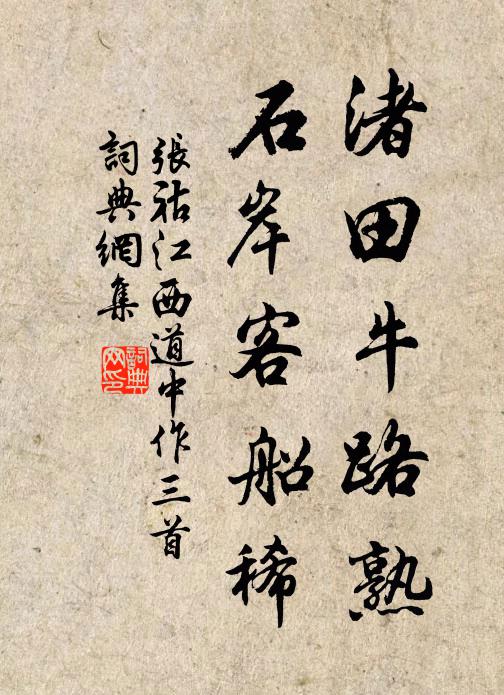 渚田牛路熟
石岸客船稀
張祜江西道中作三首
詞典網集
詞典
网印